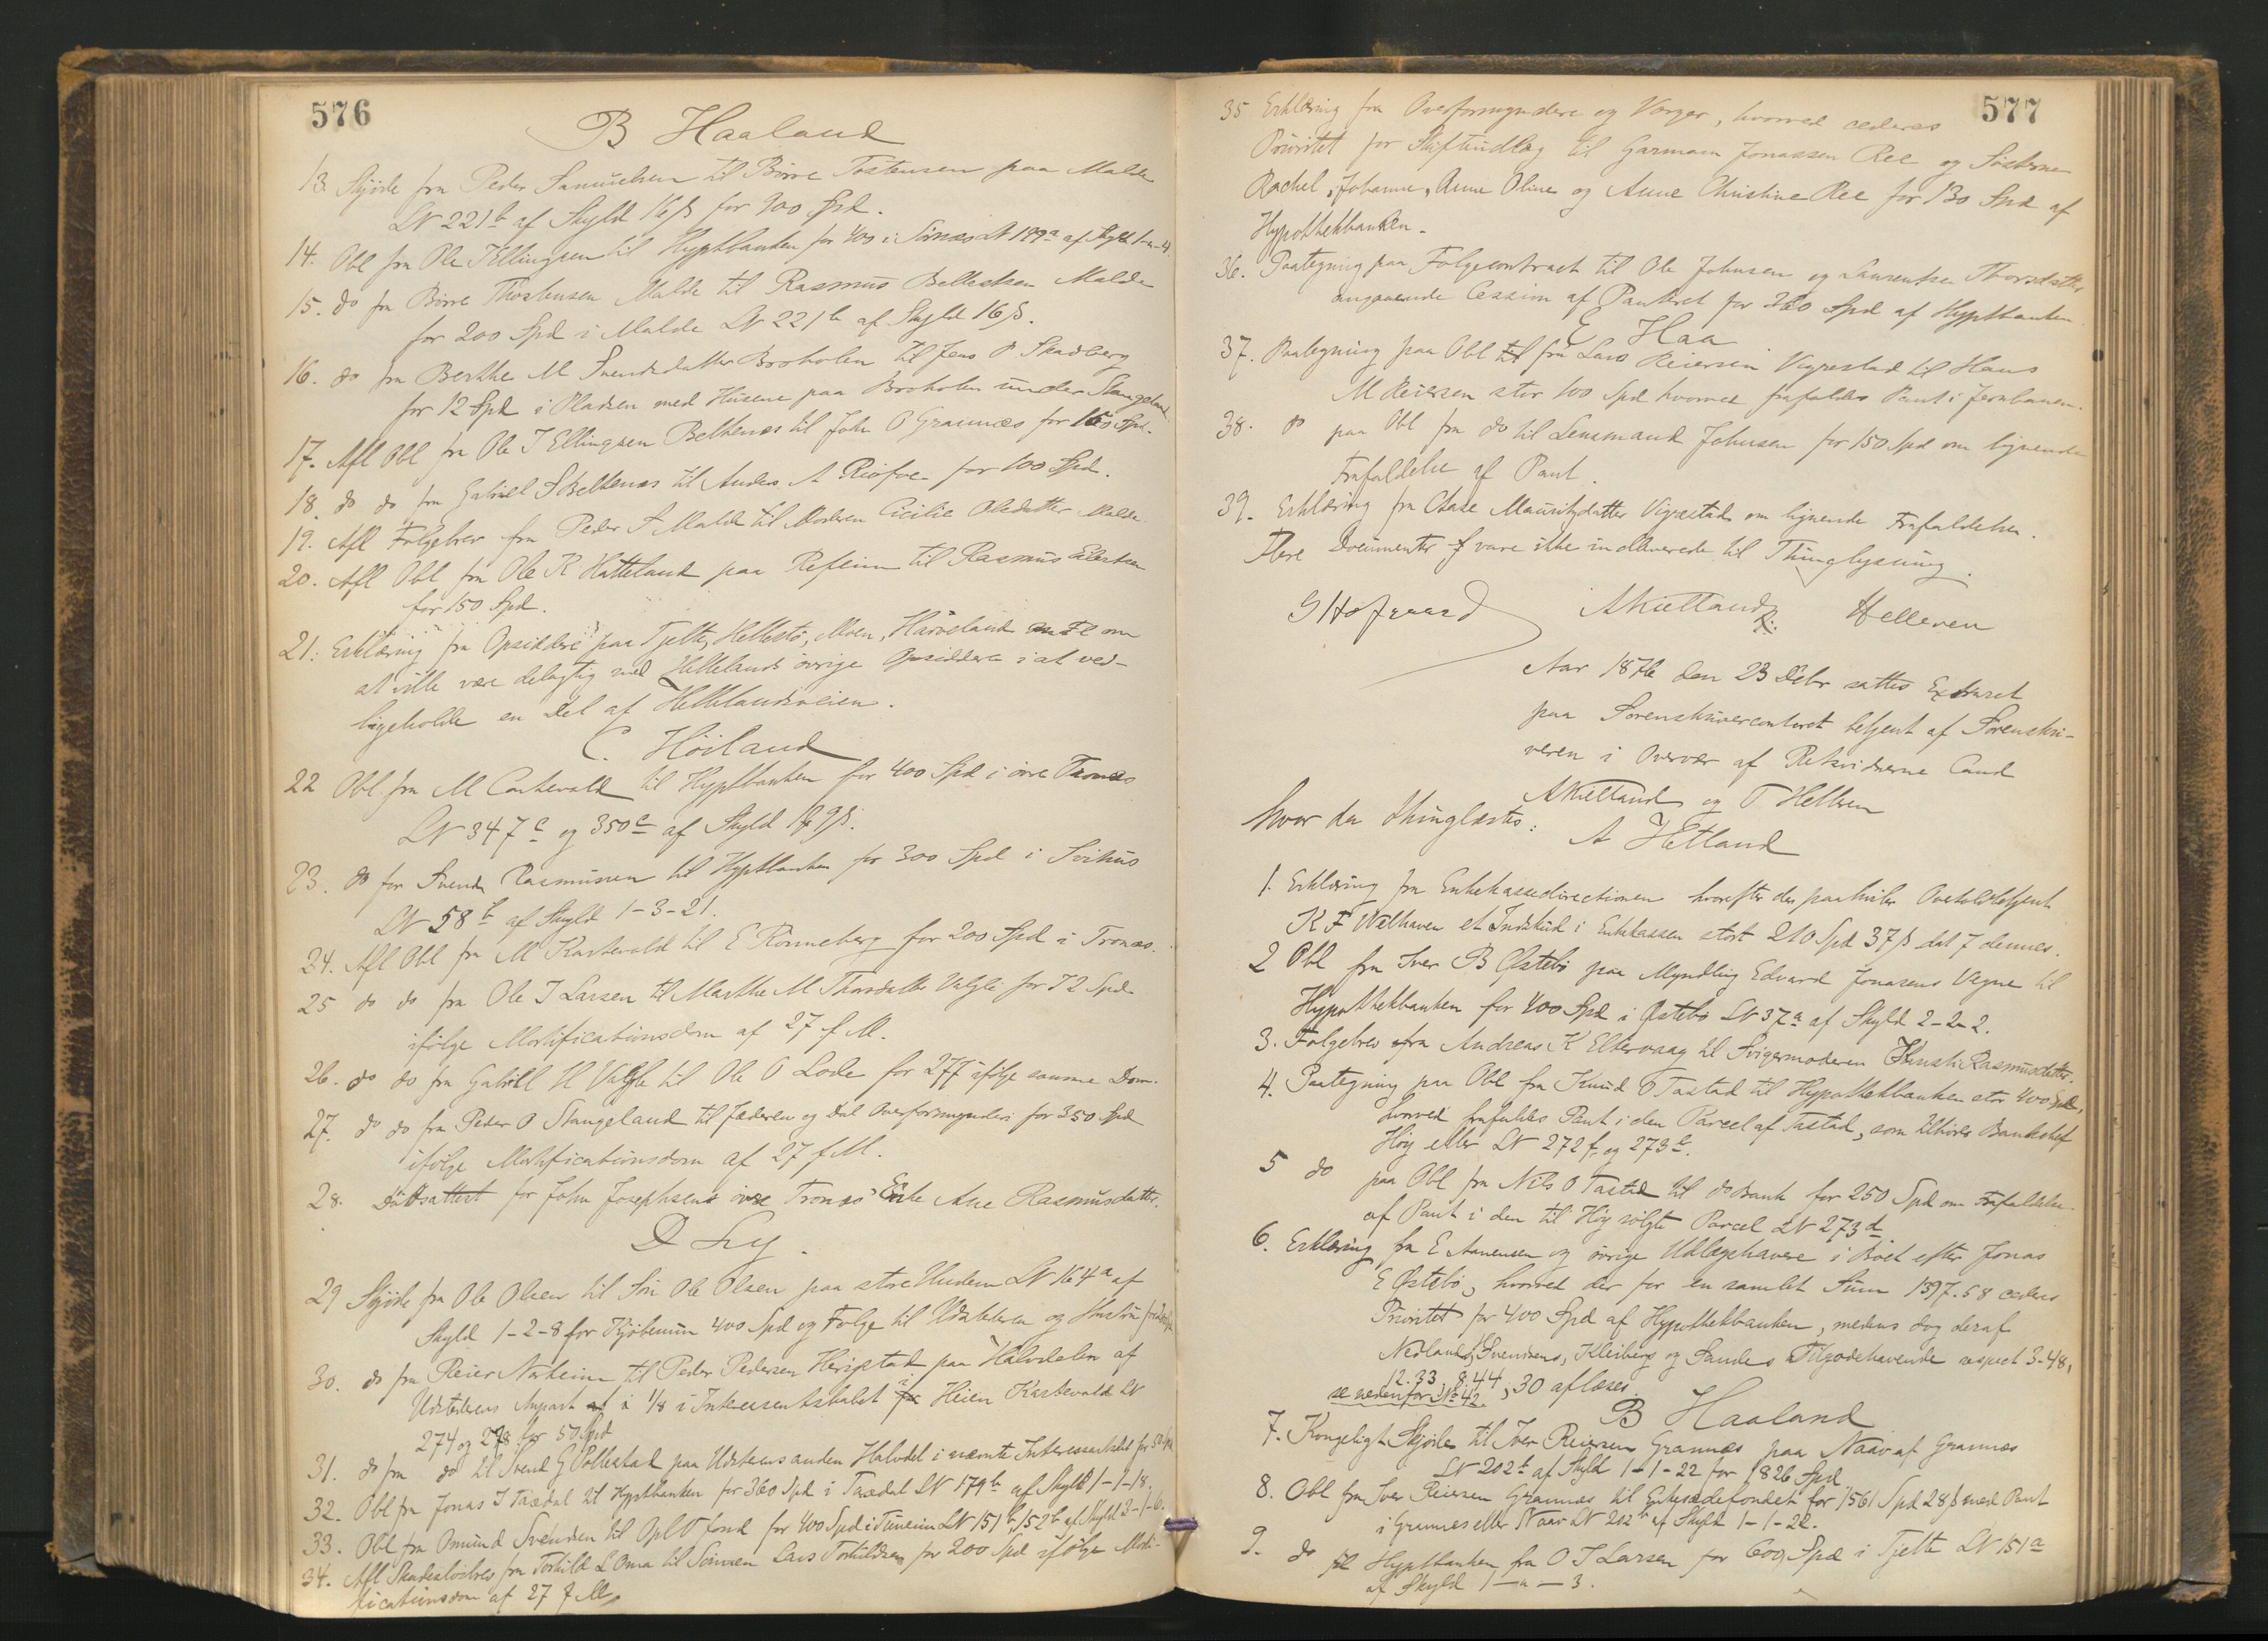 576
B Haaland
13. Skjøde fra Peder Samuelsen til Børre Tostensen paa Malde
LN 221b af Skyld 16 ß for 900 Spd.
14. Obl fra Ole T Ellingsen til Hyptbanken for 400 i Sømæs LN 199a af Skyld 1-"-4
15. do fra Børre Thostensen Malde til Rasmus Bellestsen Malde
for 200 Spd i Malde LN 221b af Skyld 16 ß.
16. do fra Berthe M Svendsdatter Broholen til Jens P Skadberg
for 12 Spd i Pladsen med Husene paa Broholen under Stangeland
17. Afl Obl fra Ole T Ellingsen Beltenæs til John O Grannæs for 150 Spd.
18. do do fra Gabriel S Beltenæs til Anders A Risfoe for 100 Spd.
19. Afl Folgebrev fra Peder S Malde til Moderen Cicilie Olsdatter Malde
20. Afl Obl fra Ole K Hatteland paa Refheim til Rasmus Eilertsen
for 150 Spd.
21. Erklæring fra Opsiddere paa Tjelte, Hellestø, Moen, Harveland m fl om
at ville være delagtig med Hellelands øvrige Opsiddere i at ved-
ligeholde en Del af Hellelandsveien.
C. Høiland
22 Obl fra M Castevald til Hyptbanken for 400 Spd i øvre Tronæs
LN 347c og 350c af Skyld 1 9 ß.
23. do for Svend Rasmussen til Hyptbanken for 300 Spd i Svihus
LN 58b af Skyld 1-3-21.
24. Afl Obl fra M Kastevald til E Rønneberg for 200 Spd i Tronæs.
25 do do fra Ole T Larsen til Marthe M Thorsdatter Valgle for 72 Spd
ifølge Mortificationsdom af 27 f M.
26. do do fra Gabriel H Valgle til Ole O Lode for 277 ifølge samme Dom.
27. do do fra Peder O Stangeland til Jæderen og Dal Overformynderi for 350 Spd
ifølge Mortificationsdom af 27 f M.
28. Dødsattest for John Josephsens øvre Tronæs Enke Ane Rasmusdatter.
D Ly.
29 Skjøde fra Ole Olsen til Søn Ole Olsen paa store Undem LN 164a af
Skyld 1-2-8 for Kjøbesum 400 Spd og Folge til Udstederen og Hustru
30. do fra Reier Norheim til Peder Pedersen Herigstad paa Halvdelen af
Udstederens Anpart i 1/8 i Interessentskabet i Heien Kastevald LN
274 og 278 for 50 Spd
31. do fra do til Svend G Pollestad paa Udsteders anden Halvdel i nævnte Interessentskab for 50 Spd
32. Obl fra Jonas T Taxdal til Hyptbanken for 360 Spd i Taxdal LN 179b af Skyld 1-1-18.
33. Obl fra Omund Svendsen til Opl O fond for 400 Spd i Tuneim LN 151b, 152b af Skyld 3-1-6.
34. Afl Skadesløsbrev fra Torkild L Oma til Sønnen Lars Torkildsen for 200 Spd ifølge Morti-
ficationsdom af 27 f M,
577
35 Erklæring fra Overformyndere og Verger, hvorved cederes
Prioritet for Skifteudlæg til Garmann Jonassen Ree og Søstrene
Rachel, Johanne, Anne Oline og Anne Christine Ree for 130 Spd af
Hypothekbanken.
36. Paategning paa Folgecontract til Ole Johnsen og Laurentse Thorsdatter
angaaende Cession af Panteret for 260 Spd af Hyptbanken
E Haa
37. Paategning paa Obl til fra Lars Reiersen Vigrestad til Hans
M Reiersen stor 100 Spd hvorved frafaldes Pant i Jernbanen.
38. do paa Obl fra do til Lensmand Johnsen for 150 Spd om lignende
Frafaldelse af Pant.
39. Erklæring fra Chase Mauritzdatter Vigrestad om lignende Frafaldelse.
Flere Documenter vare ikke indleverede til Thinglysning.
G Hofgaard A Kielland Helleren
Aar 1876 den 23 Debr sattes Extraret
paa Sorenskrivercontoret betjent af Sorenskri-
veren i Overvær af Retsvidnerne Cand
A Kielland og T Helleren
hvor da thinglæstes:
A Hetland
1. Erklæring fra Enkekassedirectionen hvorefter der paahviler Overtoldbetjent
K F Welhaven et Indskud i Enkekassen stort 210 Spd 37 ß dat 7 dennes.
2 Obl fra Iver B Østebø paa Myndling Edvard Jonasens Vegne til
Hypothekbanken for 400 Spd i Østebø LN 37a af Skyld 2-2-2.
3. Folgebrev fra Andreas K Eltervaag til Svigermoderen Rasmusdatter.
4. Paategning paa Obl fra Knud O Tastad til Hypothekbanken stor 400 Spd,
hvorved frafaldes Pant i den Parcel af Tastad, som tilhører Bankchef
Høy eller LN 272f og 273c.
5 do paa Obl fra Nils O Tastad til do Bank for 250 Spd om Frafaldelse
af Pant i den til Høy solgte Parcel LN 273d
6. Erklæring fra E Asmensen og øvrige Udlægshavere i Boet efter Jonas
E Østebø, hvorved der for en samlet Sum 1397.58 cederes
Prioritet for 400 Spd af Hypothekbanken, medens dog deraf
Nedlands, Svendsens, Kleibergs og Sandes Tilgodehavende respect 3-48,
12.33, 8.44, 30 aflæses.
se nedenfor No 42.
B Haaland
7. Kongeligt Skjøde til Iver Reiersen Grannæs paa Naav af Grannæs
LN 202b af Skyld 1-1-22 for 1826 Spd.
8. Obl fra Iver Reiersen Grannæs til Enkesædefondet for 1561 Spd 28 ß med Pant
i Grannæs eller Naav LN 202b af Skyld 1-1-22.
9. do til Hyptbanken fra O T Larsen for 600 Spd i Tjelte LN 151a
af Skyld 1-"-3.